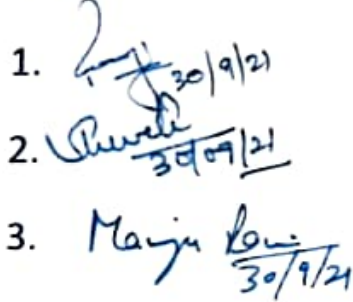 1. 30/9/21
2. Shweta 30/09/21
3. Manju Rani 30/9/21